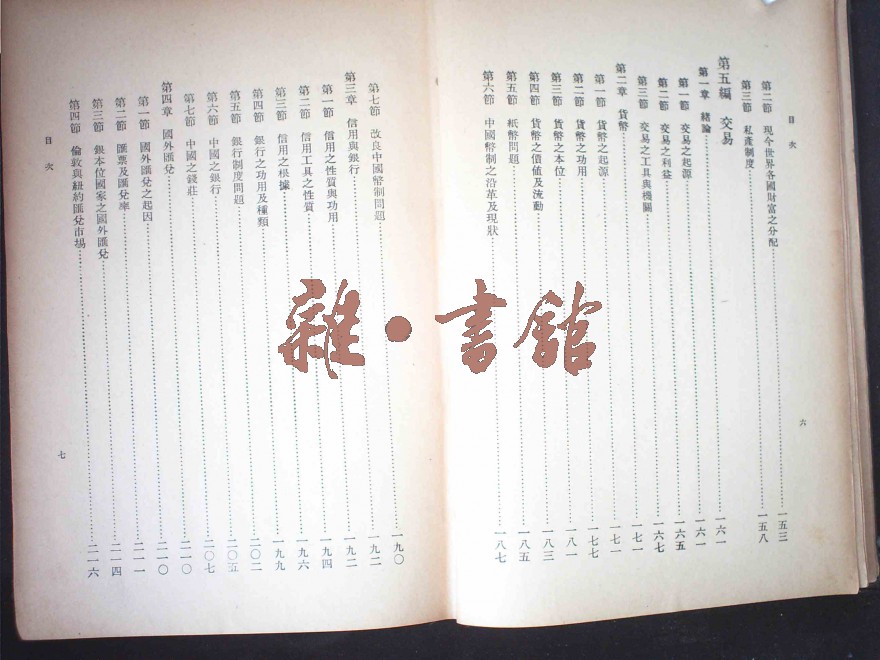 目次
六
第二節 現今世界各國財富之分配 一五三
第三節 私產制度 一五八
第五編 交易 一六一
第一章 緒論 一六一
第一節 交易之起源 一六五
第二節 交易之利益 一六七
第三節 交易之工具與機關 一七一
第二章 貨幣 一七一
第一節 貨幣之起源 一七七
第二節 貨幣之功用 一八一
第三節 貨幣之本位 一八三
第四節 貨幣之價值及流動
第五節 紙幣問題 一八五
第六節 中國幣制之沿革及現狀 一八七
第七節 改良中國幣制問題 一九〇
第三章 信用與銀行 一九二
第一節 信用之性質與功用 一九二
第二節 信用工具之性質 一九四
第三節 信用之根據 一九六
第四節 銀行之功用及種類 一九九
第五節 銀行制度問題 二〇二
第六節 中國之銀行 二〇五
第七節 中國之錢莊 二〇七
第四章 國外匯兌 二一〇
第一節 國外匯兌之起因 二一〇
第二節 匯票及匯兌率 二一一
第三節 銀本位國家之國外匯兌 二一四
第四節 倫敦與紐約匯兌市場 二一六
目次
七
雜·書館